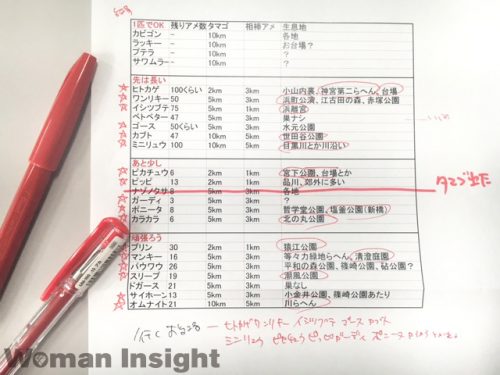 1匹でOK 残りアメ数 タマゴ 相棒アメ 生息地
カビゴン - 10km 各地
ラッキー - 10km お台場？
プテラ - 10km ？
サワムラー - 10km ？
先は長い
ヒトカゲ 100くらい 2km 3km 小山内裏、神宮第二らへん、台場
ワンリキー 50 5km 3km 浜町公演、江古田の森、赤塚公園
イシツブテ 75 2km 1km 浜離宮
ベトベター 47 3km 巣ナシ
ゴース 50くらい 5km 3km 水元公園
カブト 47 10km 5km 世田谷公園
ミニリュウ 100 10km 5km 目黒川とか川沿い
あと少し
ピカチュウ 6 2km 1km 宮下公園、台場とか
ピッピ 13 2km 1km 品川、郊外に多い
ナゾノクサ 8 5km 3km 各地
ガーディ 3 5km 3km ？
ポニータ 8 5km 3km 哲学堂公園、塩釜公園（新橋）
カラカラ 6 5km 3km 北の丸公園
頑張ろう
プリン 30 2km 1km 猿江公園
マンキー 16 5km 3km 等々力緑地らへん、清澄庭園
パウワウ 26 5km 3km 平和の森公園、篠崎公園、砧公園？
スリープ 19 5km 3km 潮風公園
ドガース 21 5km 3km 巣なし
サイホーン 13 5km 3km 小金井公園、篠崎公園あたり
オムナイト 21 10km 5km 川らへん
Woman Insight